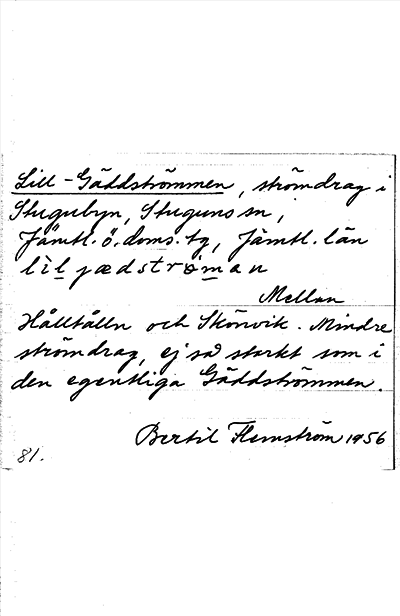 Lill-Gäddströmmen, strömdrag i
Stugubyn, Stuguns sn,
Jämtl. ö. doms. tg, Jämtl. län
lìl jædströman
Mellan
Hålltålln och Skörvik. Mindre
strömdrag, ej så starkt som i
den egentliga Gäddströmmen.
Bertil Flemström 1956
81.